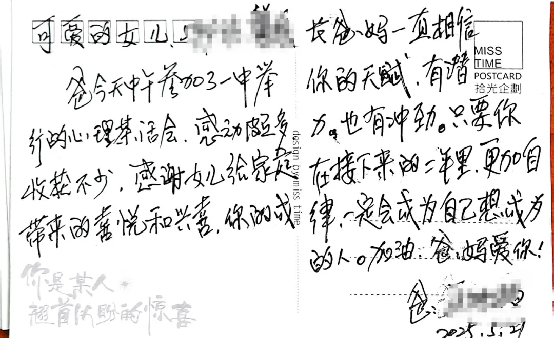 可爱的女儿:
爸今天中午参加了一中举
行的心理茶话会,感动颇多
收获不少,感谢女儿给家庭
带来的喜悦和兴喜,你的成
你是某人
翘首以盼的惊喜
design by miss time
长爸、妈一直相信
你的天赋,有潜
力,也有冲劲。只要你
在接下来的二年里,更加自
律,一定会成为自己想成为
的人。加油 爸、妈爱你!
爸:
2025.5.21
MISS
TIME
POSTCARD
拾光企劃